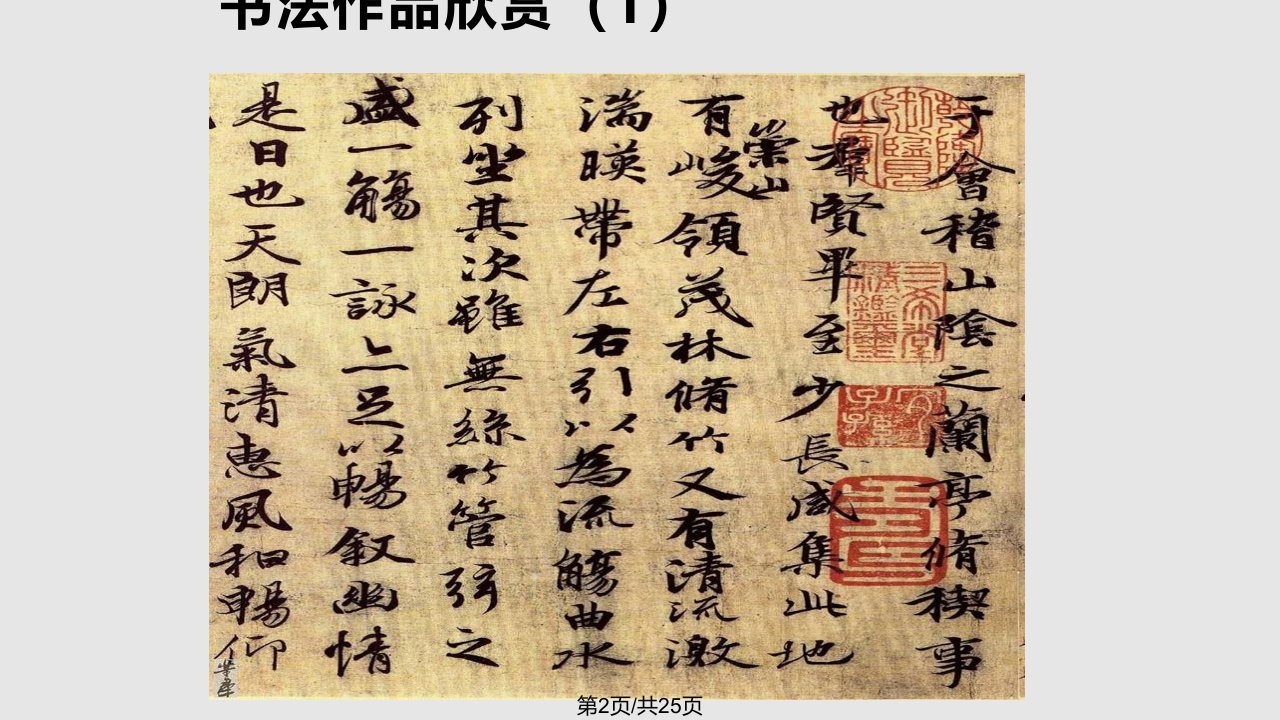 书法作品欣赏（1）
于會稽山陰之蘭亭脩稧事
也羣賢畢至少長咸集此地
有崇山峻領茂林脩竹又有清流激
湍暎帶左右引以為流觴曲水
列坐其次雖無絲竹管弦之
盛一觴一詠亦足以暢敘幽情
是日也天朗氣清惠風和暢仰
第2页/共25页